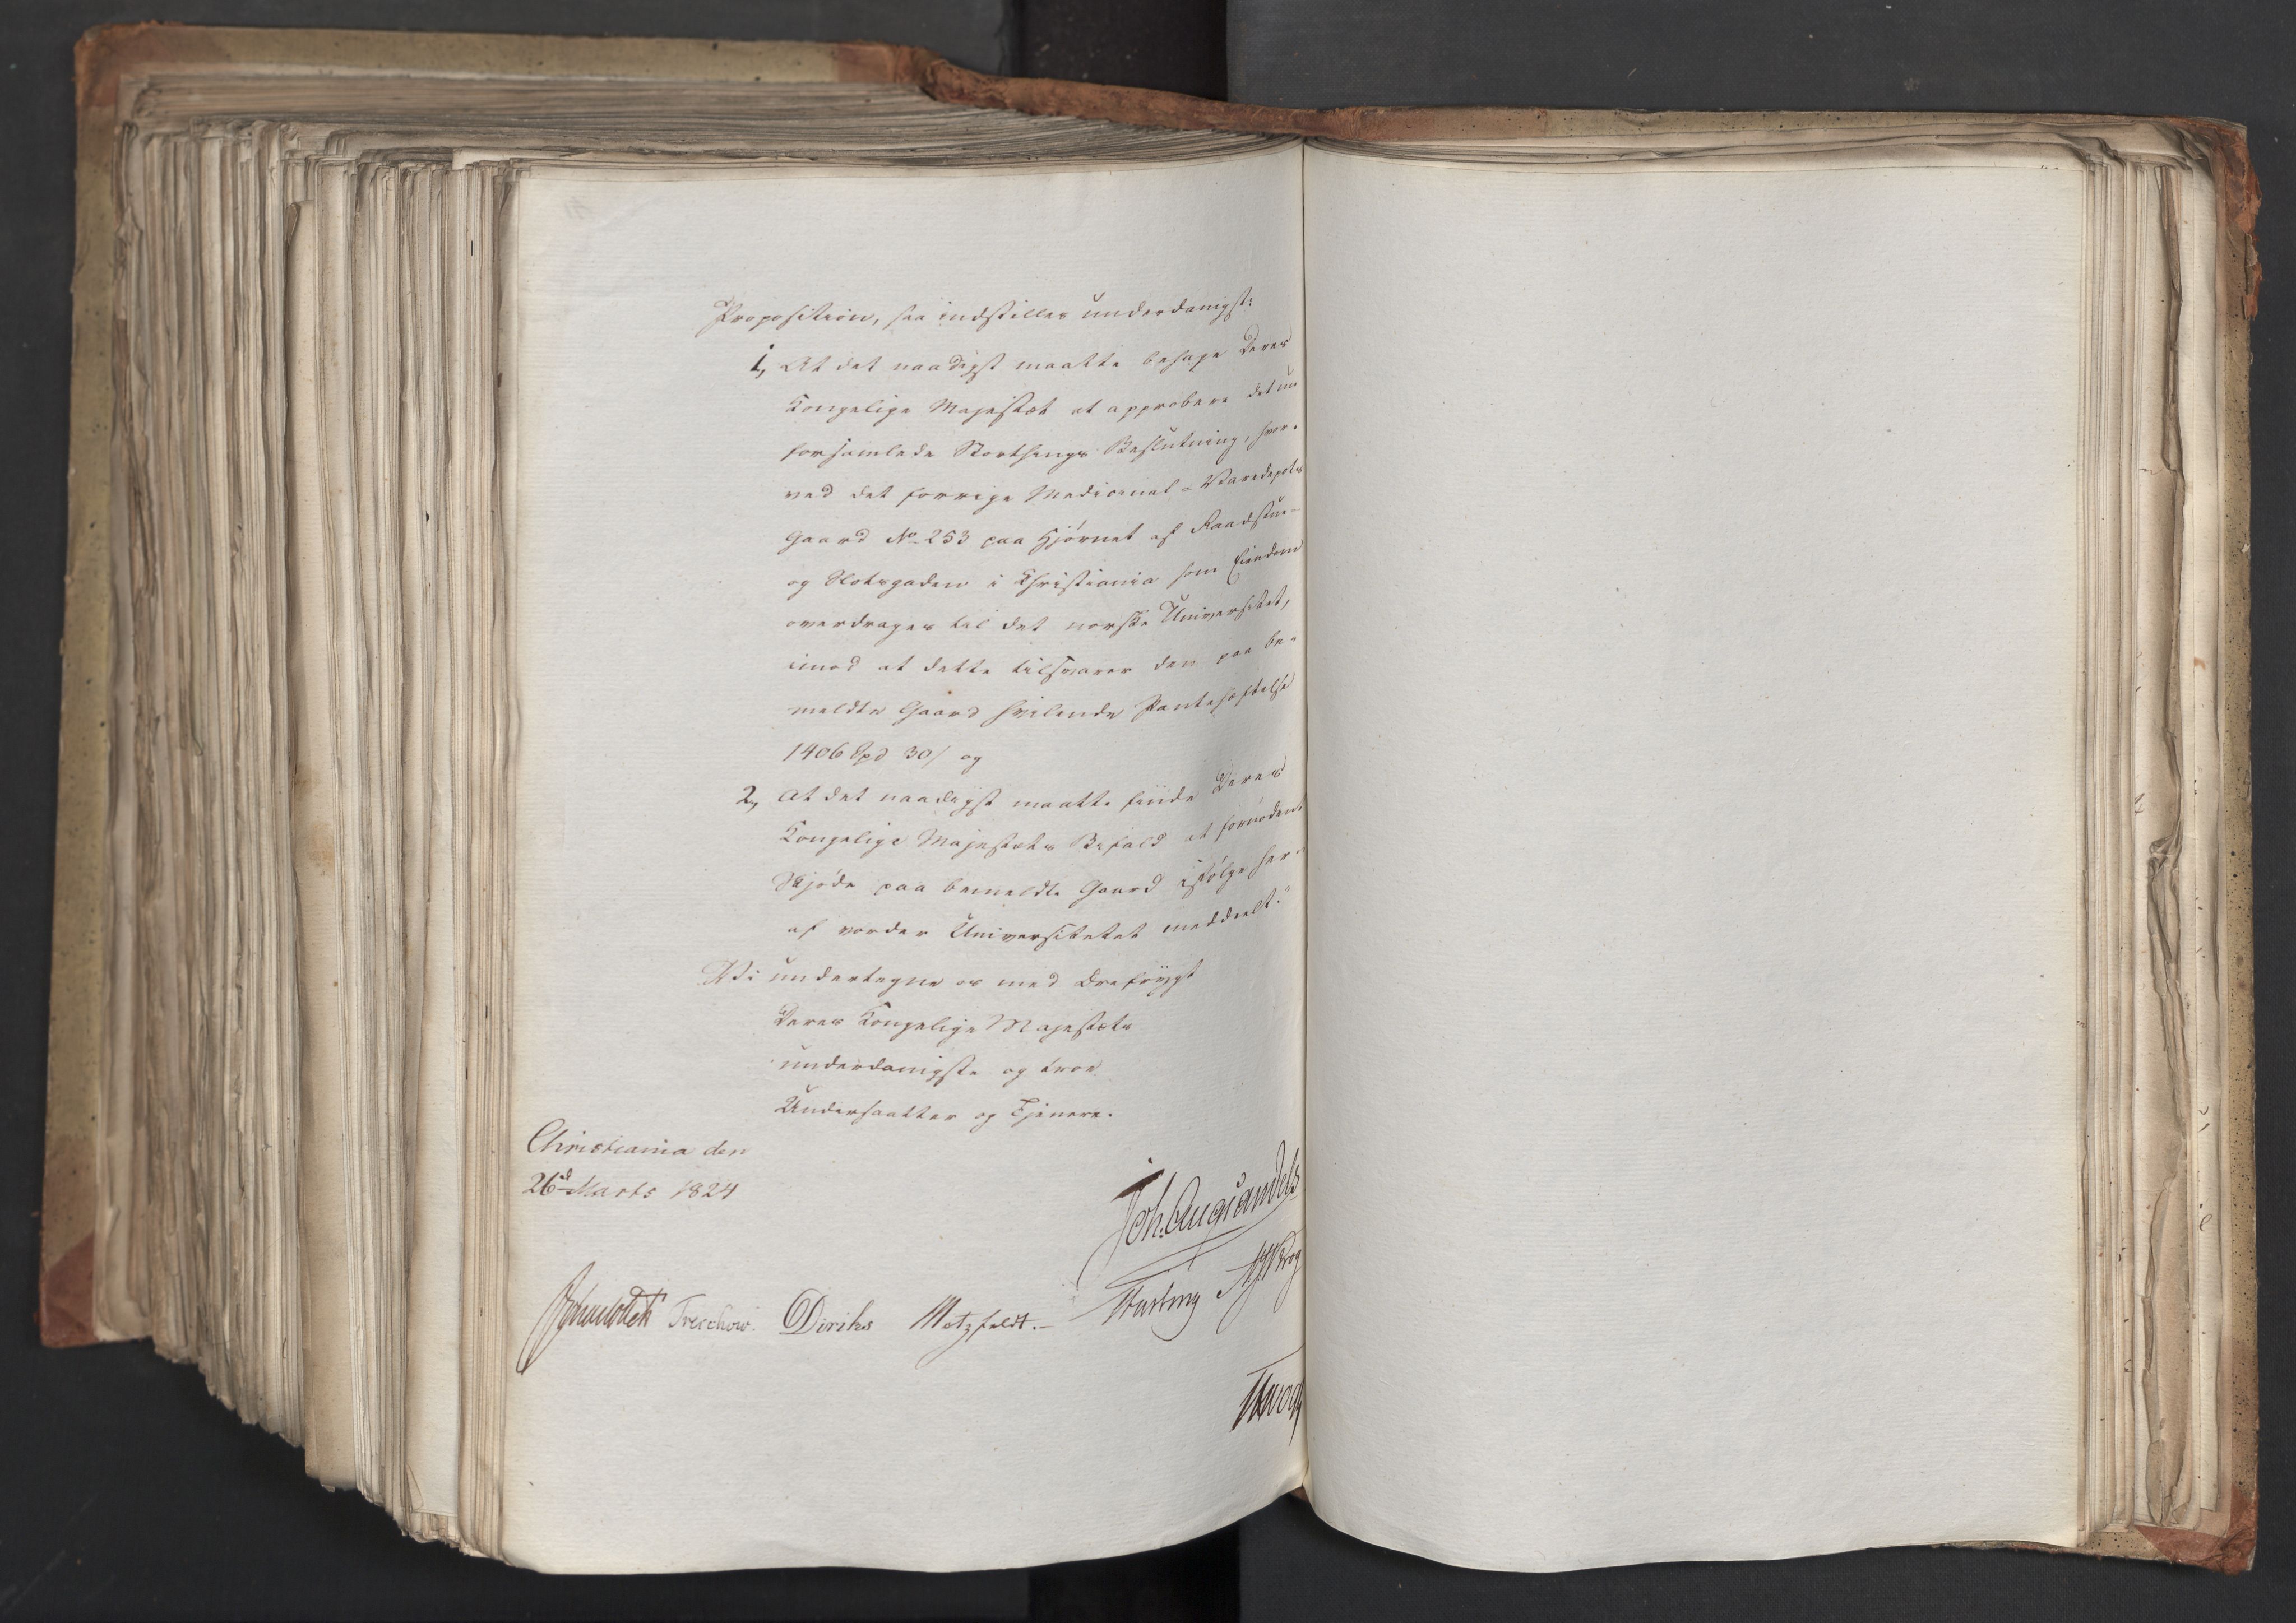 Proposition, saa indstilles underdanigst:
1, At det naadigst maatte behage Deres
Kongelige Majestæt at approbere det nu
forsamlede Storthings Beslutning, hvor-
ved det forrige Medicinal-Varedepots
Gaard No 253 paa Hjørnet af Raadstue-
og Slotsgaden i Christiania som Eiendom
overdrages til det norske Universitet,
imod at dette tilsvarer den paa be-
meldte Gaard hvilende Panteheftelse
1406 Spd 30/ og
2, At det naadigst maatte finde Deres
Kongelige Majestæts Bifald at fornødent
Skjøde paa bemeldte Gaard ifølge her-
af vorder Universitetet meddeelt."
Vi undertegne os med Dybfrygt
Deres Kongelige Majestæts
underdanigste og troe
Undersaatter og Tjenere.
Christiania den
26d Marts 1824
Joh. Aug. Sandels
Treschow. Diriks Motzfeldt.-
Krog